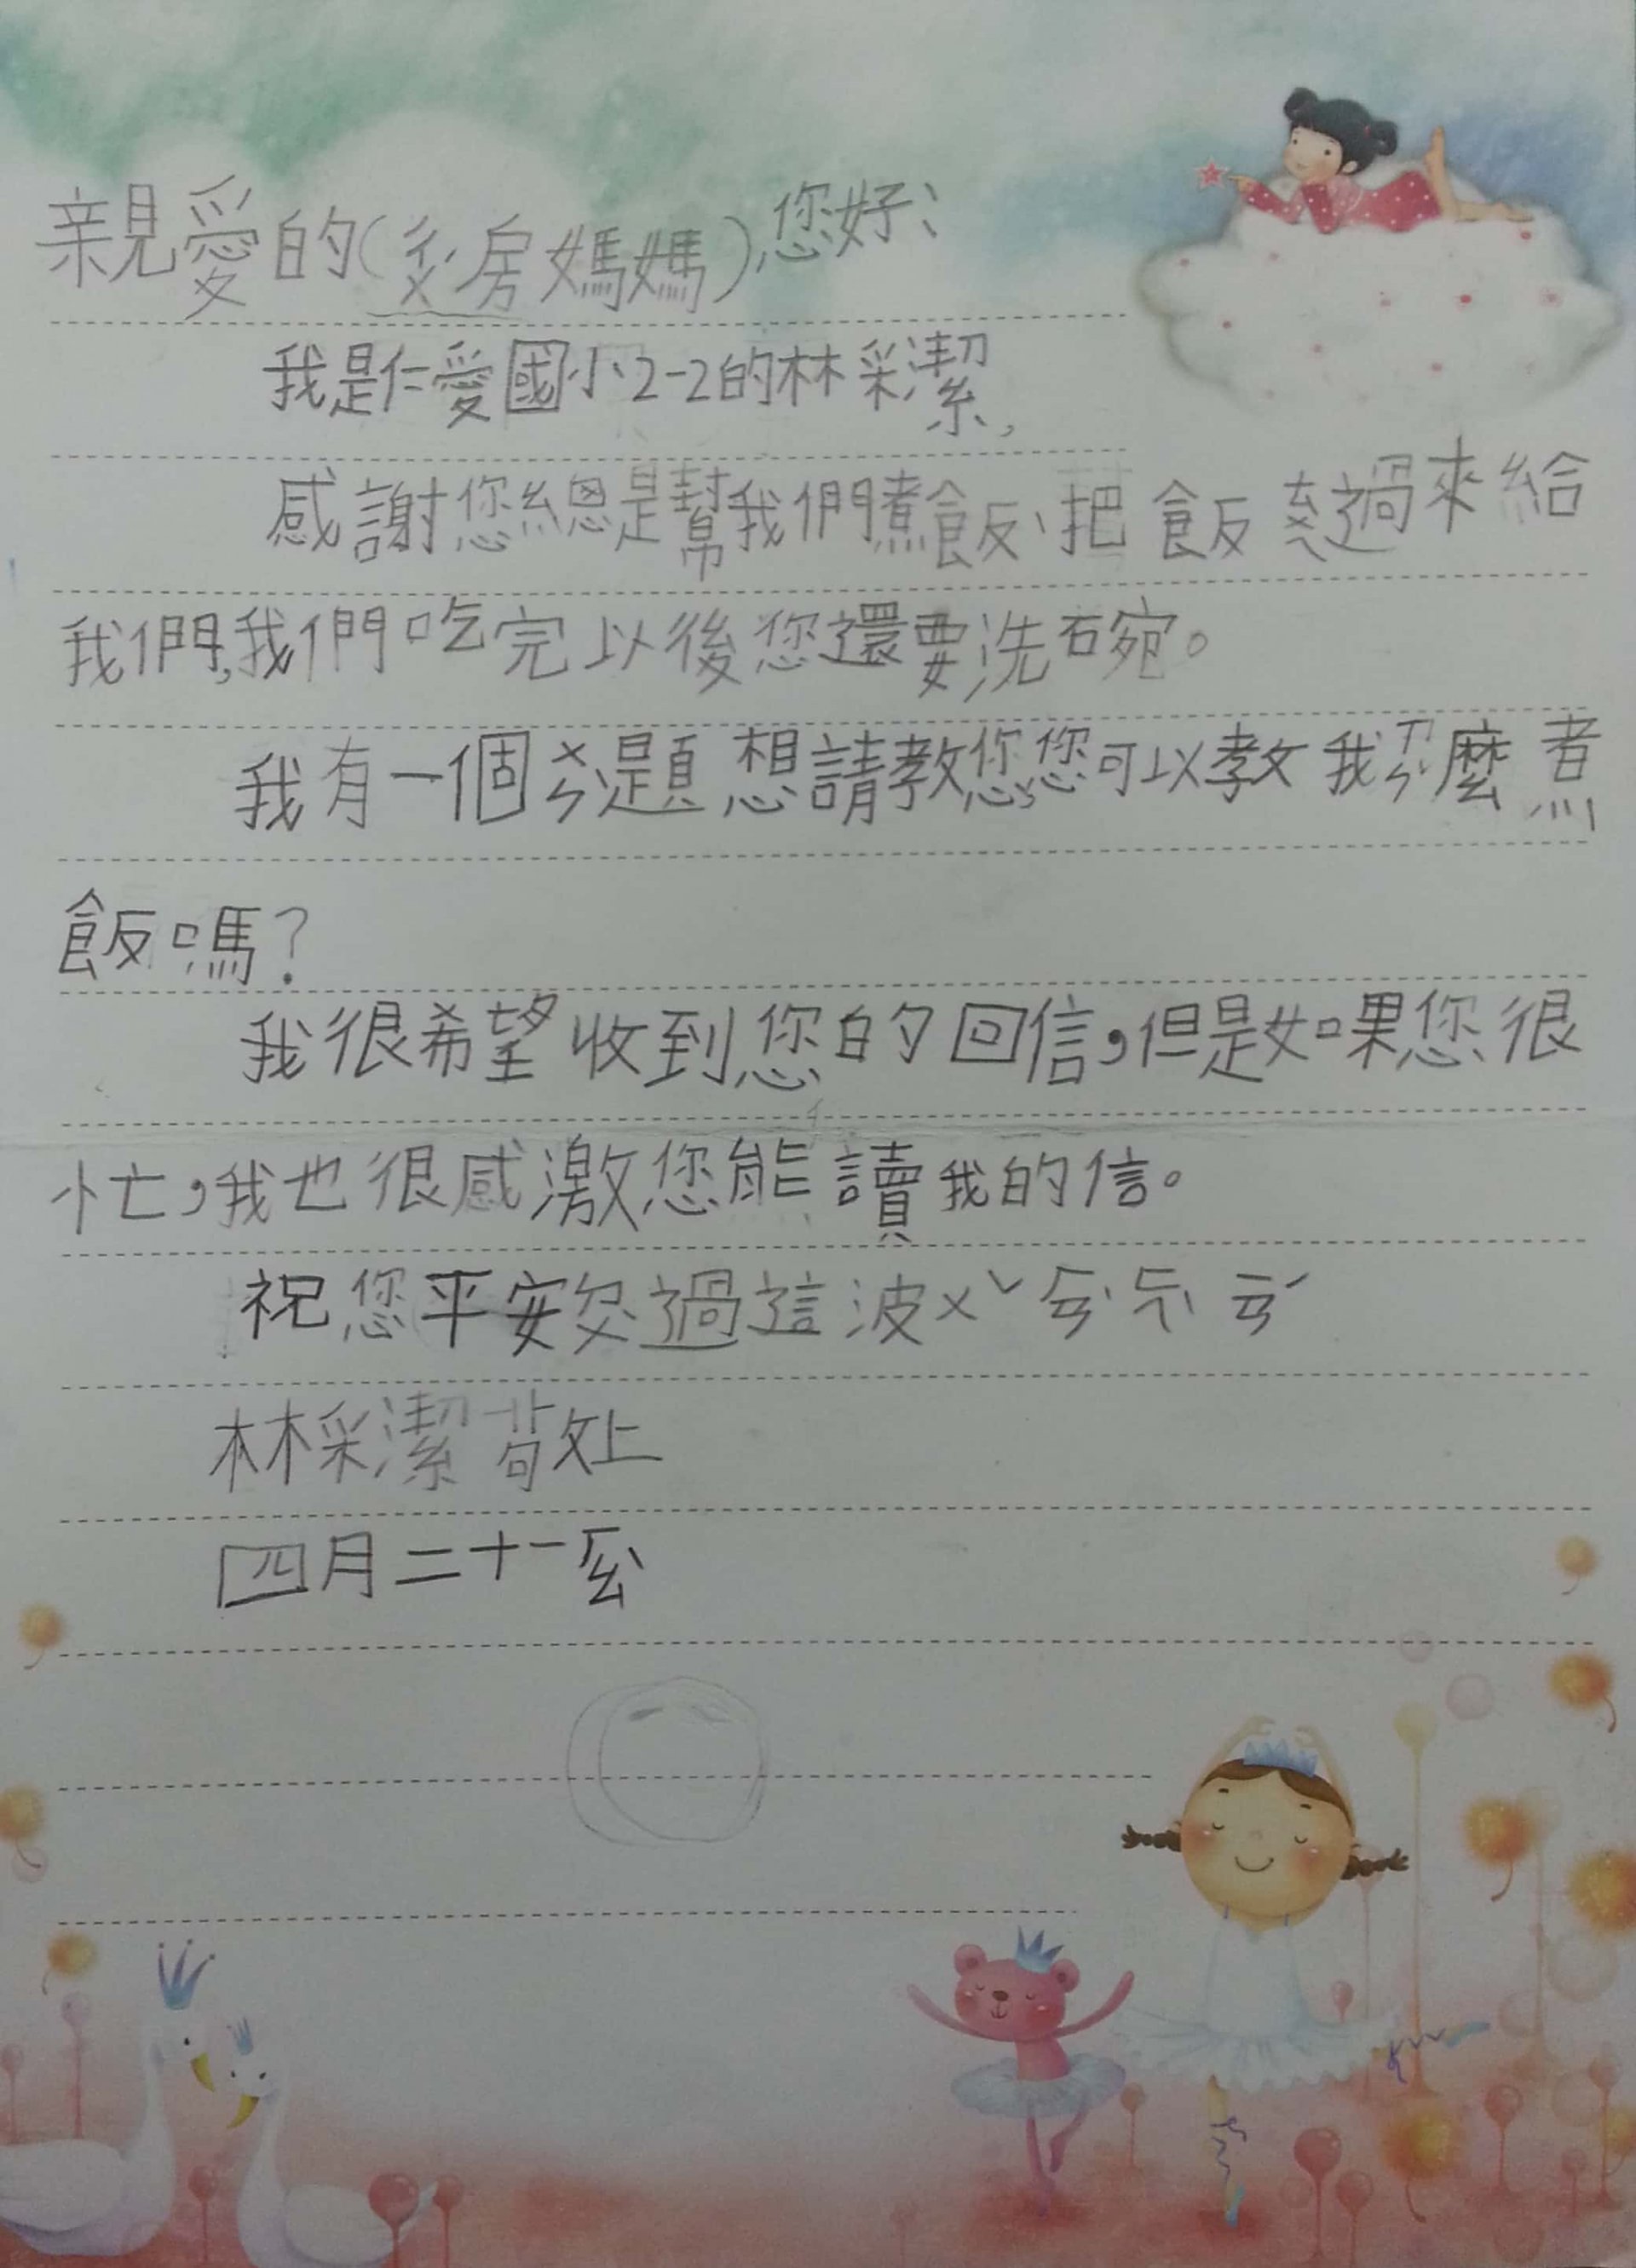 親愛的(ㄔㄨˊ房媽媽),您好:
我是仁愛國小2-2的林采潔,
感謝您總是幫我們煮飯、把飯過來給
我們,我們吃完以後您還要洗碗。
我有一個ㄨㄣˋ題想請教您,您可以教我ㄗㄣˇ麼煮
飯嗎?
我很希望收到您的回信,但是如果您很
忙,我也很感激您能讀我的信。
祝您平安ㄉㄨˋ過這波ㄨˇㄏㄢˋㄈㄟˋㄧㄢˊ
林采潔敬上
四月二十一ㄏㄠˋ